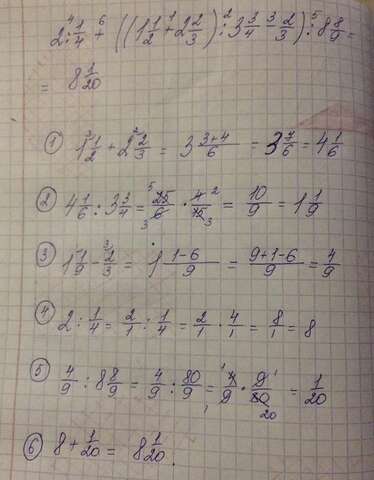 2 : 1/4 + ((1 1/2 + 2 2/3) : 3 3/4 - 2/3) : 8 8/9 =
= 8 1/20
① 1 1/2 + 2 2/3 = 3 (3+4)/6 = 3 7/6 = 4 1/6
② 4 1/6 : 3 3/4 = 25/6 · 4/15 = 10/9 = 1 1/9
③ 1 1/9 - 2/3 = 1 (1-6)/9 = (9+1-6)/9 = 4/9
④ 2 : 1/4 = 2/1 : 1/4 = 2/1 · 4/1 = 8/1 = 8
⑤ 4/9 : 8 8/9 = 4/9 : 80/9 = 4/9 · 9/80 = 1/20
⑥ 8 + 1/20 = 8 1/20.